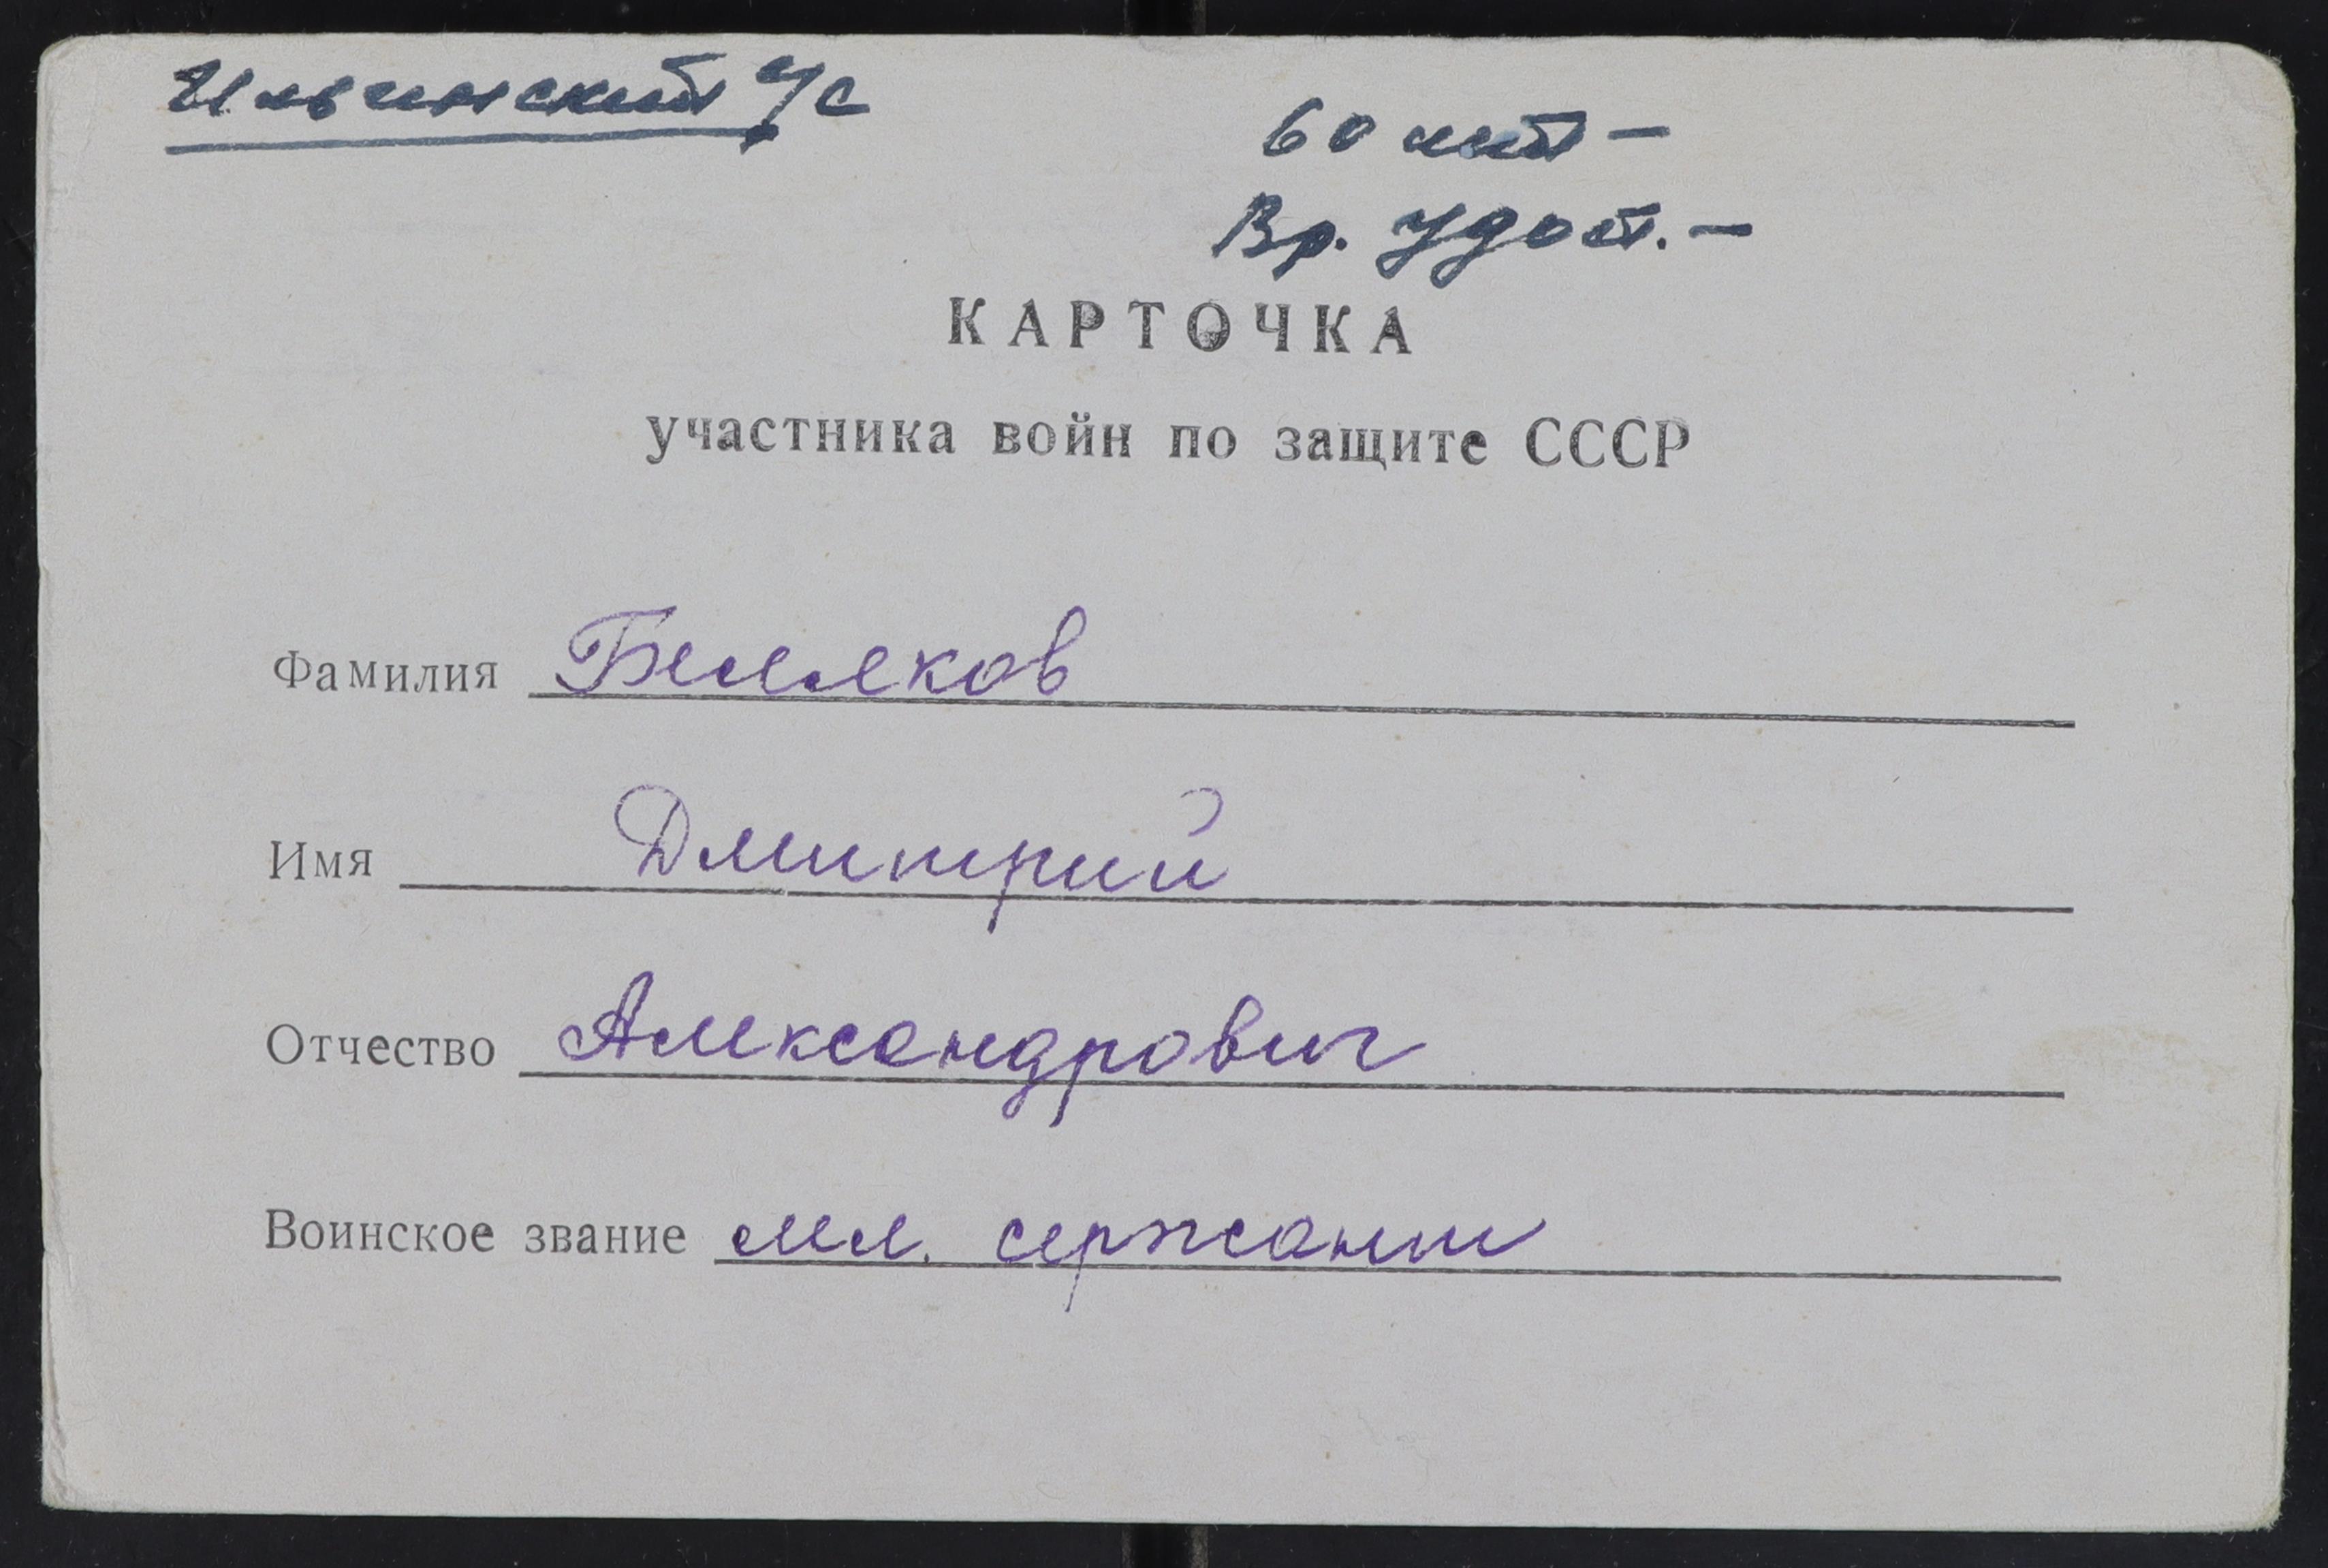 Ильинский с/с
60 лет —
Вр. Удост. —
КАРТОЧКА
участника войн по защите СССР
Фамилия
Имя Дмитрий
Отчество Александрович
Воинское звание мл. сержант